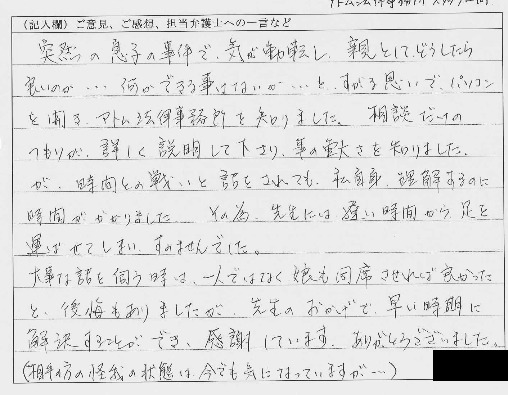 アトム法律事務所 スタッフ一同
(記入欄) ご意見、ご感想、担当弁護士への一言など
突然の息子の事件で、気が動転し、親としてどうしたら
良いのか…何ができる事はないか…と、すがる思いで、パソコン
を開き、アトム法律事務所を知りました。 相談だけの
つもりが、詳しく説明して下さり、事の重大さを知りました。
が、時間との戦いと話をされても、私自身、理解するのに
時間がかかりました その為、先生には遅い時間から足を
運ばせてしまい、すみませんでした。
大事な話を伺う時は、一人ではなく娘も同席させれば良かった
と、後悔もありましたが、先生のおかげで、早い時期に
解決することができ、感謝しています。ありがとうございました。
(相手の方の怪我の状態は、今でも気になっていますが…)